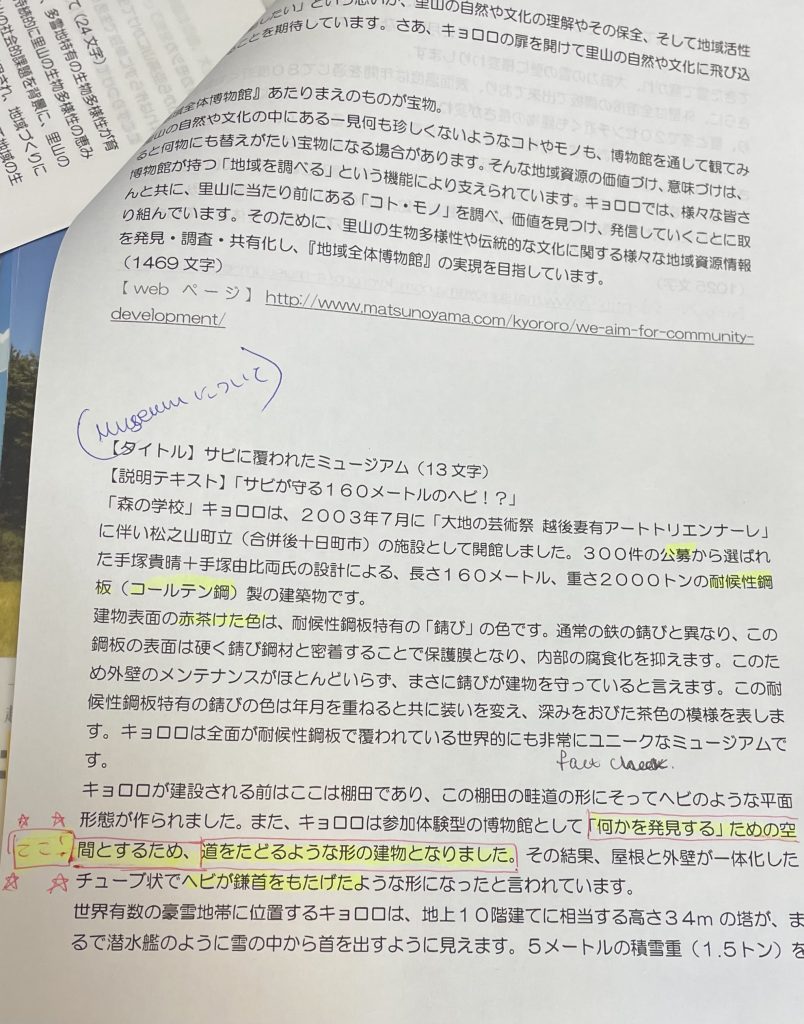 て(24文字)
、多雪地特有の生物多様性が育
生物多様性の恵み
持続的に里山の
の社会的課題を背景に、里山の
され、地域づくりに
て地域の生
したい」という思いが、里山の自然や文化の理解やその保全、そして地域活性
ことを期待しています。さあ、キョロロの扉を開けて里山の自然や文化に飛び込
全体博物館』あたりまえのものが宝物。
山の自然や文化の中にある一見何も珍しくないようなコトやモノも、博物館を通して観てみ
ると何物にも替えがたい宝物になる場合があります。そんな地域資源の価値づけ、意味づけは、
博物館が持つ「地域を調べる」という機能により支えられています。キョロロでは、様々な皆さ
んと共に、里山に当たり前にある「コト・モノ」を調べ、価値を見つけ、発信していくことに取
り組んでいます。そのために、里山の生物多様性や伝統的な文化に関する様々な地域資源情報
を発見・調査・共有化し、『地域全体博物館』の実現を目指しています。
(1469文字)
【web ページ】http://www.matsunoyama.com/kyororo/we-aim-for-community-
development/
(museumについて)
【タイトル】サビに覆われたミュージアム(13文字)
【説明テキスト】「サビが守る160メートルのヘビ!?」
「森の学校」キョロロは、2003年7月に「大地の芸術祭 越後妻有アートトリエンナーレ」
に伴い松之山町立(合併後十日町市)の施設として開館しました。300件の公募から選ばれ
た手塚貴晴+手塚由比両氏の設計による、長さ160メートル、重さ2000トンの耐候性鋼
板(コールテン鋼)製の建築物です。
建物表面の赤茶けた色は、耐候性鋼板特有の「錆び」の色です。通常の鉄の錆びと異なり、この
鋼板の表面は硬く錆び鋼材と密着することで保護膜となり、内部の腐食化を抑えます。このた
め外壁のメンテナンスがほとんどいらず、まさに錆びが建物を守っていると言えます。この耐
候性鋼板特有の錆びの色は年月を重ねると共に装いを変え、深みをおびた茶色の模様を表しま
す。キョロロは全面が耐候性鋼板で覆われている世界的にも非常にユニークなミュージアムで
す。
fact check.
キョロロが建設される前はここは棚田であり、この棚田の畦道の形にそってヘビのような平面
形態が作られました。また、キョロロは参加体験型の博物館として「何かを発見する」ための空
ここ?
間とするため、道をたどるような形の建物となりました。その結果、屋根と外壁が一体化した
チューブ状でヘビが鎌首をもたげたような形になったと言われています。
世界有数の豪雪地帯に位置するキョロロは、地上10階建てに相当する高さ34mの塔が、ま
るで潜水艦のように雪の中から首を出すように見えます。5メートルの積雪重(1.5トン)を